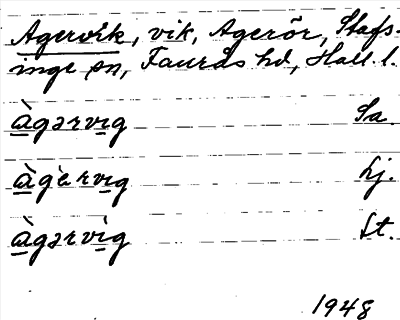 Agervik, vik, Agerör, Stafs-
inge sn, Faurås hd, Hall. l.
àgərvìg Sa.
àgèrvìg Lj.
àgərvìg St.
1948